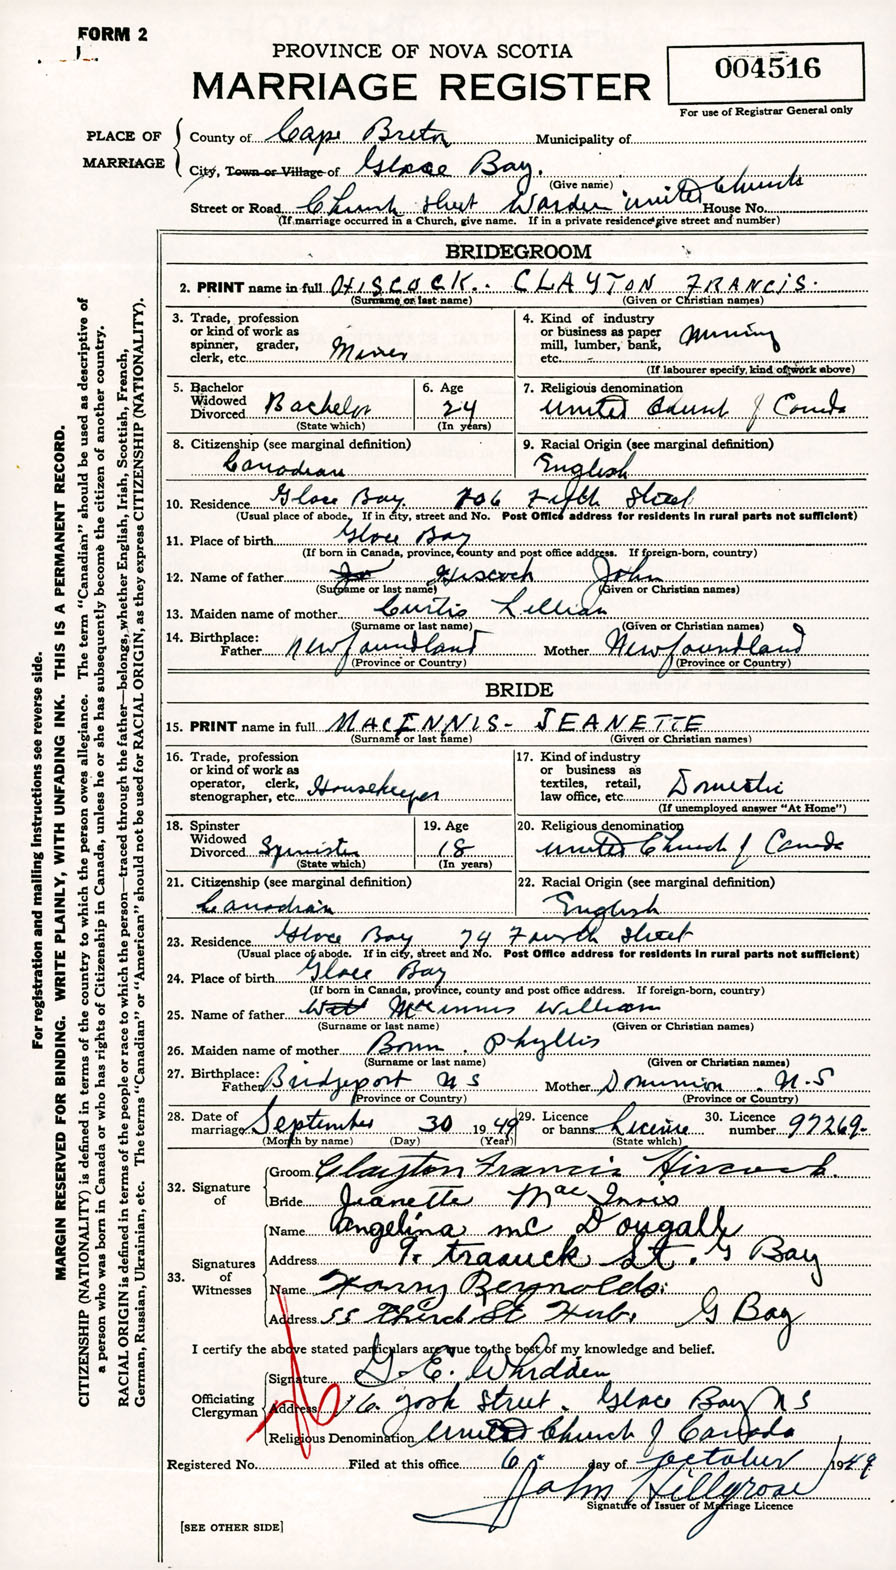 FORM 2
PROVINCE OF NOVA SCOTIA
MARRIAGE REGISTER
004516
For use of Registrar General only
PLACE OF MARRIAGE
County of Cape Breton Municipality of
City, Town or Village of Glace Bay.
(Give name)
Street or Road Church Street Warden United Church House No.
(If marriage occurred in a Church, give name. If in a private residence give street and number)
BRIDEGROOM
2. PRINT name in full HISCOCK.. CLAYTON FRANCIS.
(Surname or last name) (Given or Christian names)
3. Trade, profession or kind of work as spinner, grader, clerk, etc. Miner
4. Kind of industry or business as paper mill, lumber, bank, etc. Mining
(If labourer specify, kind of work above)
5. Bachelor Widowed Divorced Bachelor
(State which)
6. Age 24
(In years)
7. Religious denomination United Church of Canada
8. Citizenship (see marginal definition) Canadian
9. Racial Origin (see marginal definition) English
10. Residence Glace Bay 706 Fifth Street
(Usual place of abode. If in city, street and No. Post Office address for residents in rural parts not sufficient)
11. Place of birth Glace Bay
(If born in Canada, province, county and post office address. If foreign-born, country)
12. Name of father Hiscock John
(Surname or last name) (Given or Christian names)
13. Maiden name of mother Curtis Lillian
(Surname or last name) (Given or Christian names)
14. Birthplace: Father Newfoundland Mother Newfoundland
(Province or Country) (Province or Country)
BRIDE
15. PRINT name in full MACINNIS - JEANETTE
(Surname or last name) (Given or Christian names)
16. Trade, profession or kind of work as operator, clerk, stenographer, etc. Housekeeper
17. Kind of industry or business as textiles, retail, law office, etc. Domestic
(If unemployed answer "At Home")
18. Spinster Widowed Divorced Spinster
(State which)
19. Age 18
(In years)
20. Religious denomination United Church of Canada
21. Citizenship (see marginal definition) Canadian
22. Racial Origin (see marginal definition) English
23. Residence Glace Bay 74 Fourth Street
(Usual place of abode. If in city, street and No. Post Office address for residents in rural parts not sufficient)
24. Place of birth Glace Bay
(If born in Canada, province, county and post office address. If foreign-born, country)
25. Name of father MacInnis William
(Surname or last name) (Given or Christian names)
26. Maiden name of mother Phyllis
(Surname or last name) (Given or Christian names)
27. Birthplace: Father Bridgeport N S Mother Dominion . N.S
(Province or Country) (Province or Country)
28. Date of marriage September 30 1949
(Month by name) (Day) (Year)
29. Licence or banns License
(State which)
30. Licence number 97269-
32. Signature of
Groom Clayton Francis Hiscock.
Bride Jeanette MacInnis
33. Signatures of Witnesses
Name Angelina McDougall
Address St. G Bay
Name Harry Reynolds
Address 55 Third St G Bay
I certify the above stated particulars are true to the best of my knowledge and belief.
Officiating Clergyman
Signature G. E. Whidden
Address 16. York Street. Glace Bay N S
Religious Denomination United Church of Canada
Registered No. Filed at this office 6 day of October 1949
John Hillgrose
Signature of Issuer of Marriage Licence
[SEE OTHER SIDE]
For registration and mailing instructions see reverse side.
MARGIN RESERVED FOR BINDING. WRITE PLAINLY, WITH UNFADING INK. THIS IS A PERMANENT RECORD.
CITIZENSHIP (NATIONALITY) is defined in terms of the country to which the person owes allegiance. The term "Canadian" should be used as descriptive of
a person who was born in Canada or who has rights of Citizenship in Canada, unless he or she has subsequently become the citizen of another country.
RACIAL ORIGIN is defined in terms of the people or race to which the person—traced through the father—belongs, whether English, Irish, Scottish, French,
German, Russian, Ukrainian, etc. The terms "Canadian" or "American" should not be used for RACIAL ORIGIN, as they express CITIZENSHIP (NATIONALITY).